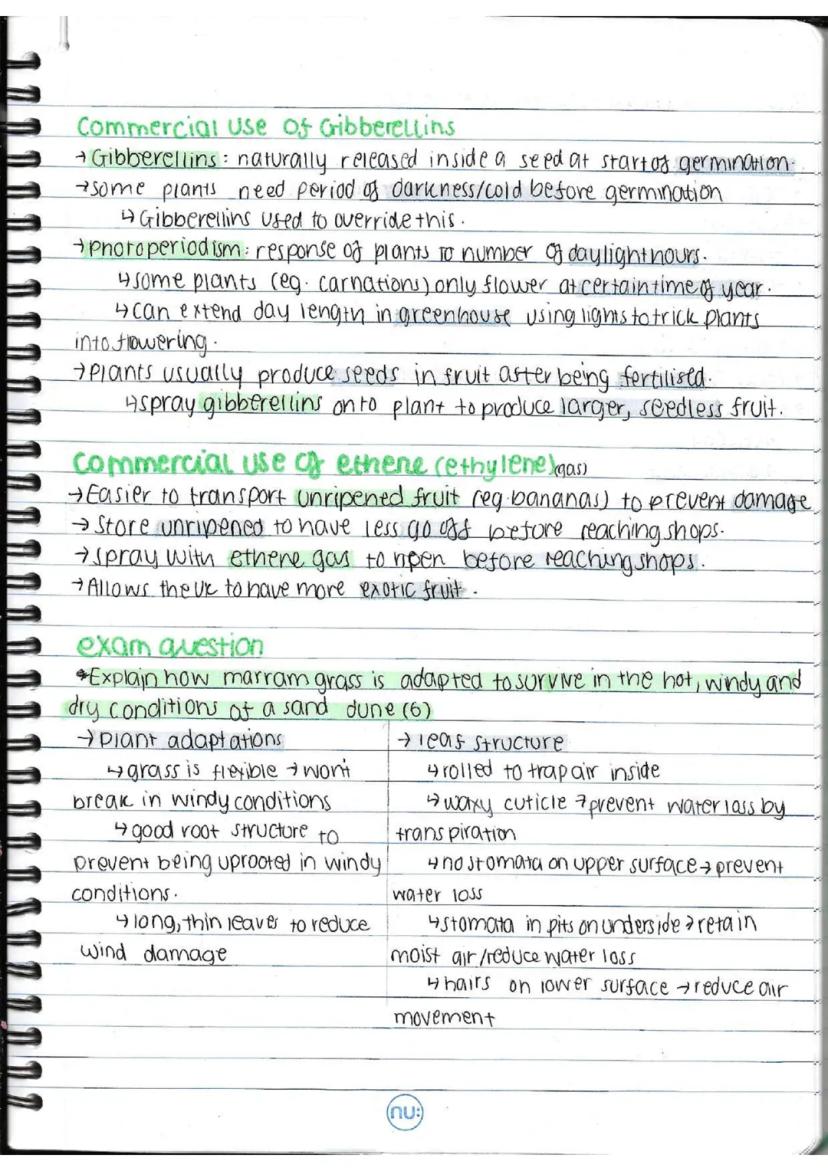 Commercial use of Gibberellins
→ Gibberellins: naturally released inside a seed at start of germination.
→ some plants need period of darkness/cold before germination
↳ Gibberellins used to override this.
→ photoperiodism: response of plants to number of daylight hours.
↳ some plants (eg. carnations) only flower at certain time of year.
↳ can extend day length in greenhouse using lights to trick plants
into flowering.
→ Plants usually produce seeds in fruit after being fertilised.
↳ spray gibberellins onto plant to produce larger, seedless fruit.
commercial use of ethene (ethylene) (gas)
→ Easier to transport unripened fruit (eg. bananas) to prevent damage
→ Store unripened to have less go off before reaching shops.
→ spray with ethene gas to ripen before reaching shops.
→ Allows the UK to have more exotic fruit.
exam question
*Explain how marram grass is adapted to survive in the hot, windy and
dry conditions of a sand dune (6)
→ plant adaptations
↳ grass is flexible → won't
break in windy conditions
↳ good root structure to
prevent being uprooted in windy
conditions.
↳ long, thin leaves to reduce
wind damage
→ leaf structure
↳ rolled to trap air inside
↳ waxy cuticle → prevent water loss by
transpiration
↳ no stomata on upper surface → prevent
water loss
↳ stomata in pits on underside → retain
moist air/reduce water loss
↳ hairs on lower surface → reduce air
movement
nu: